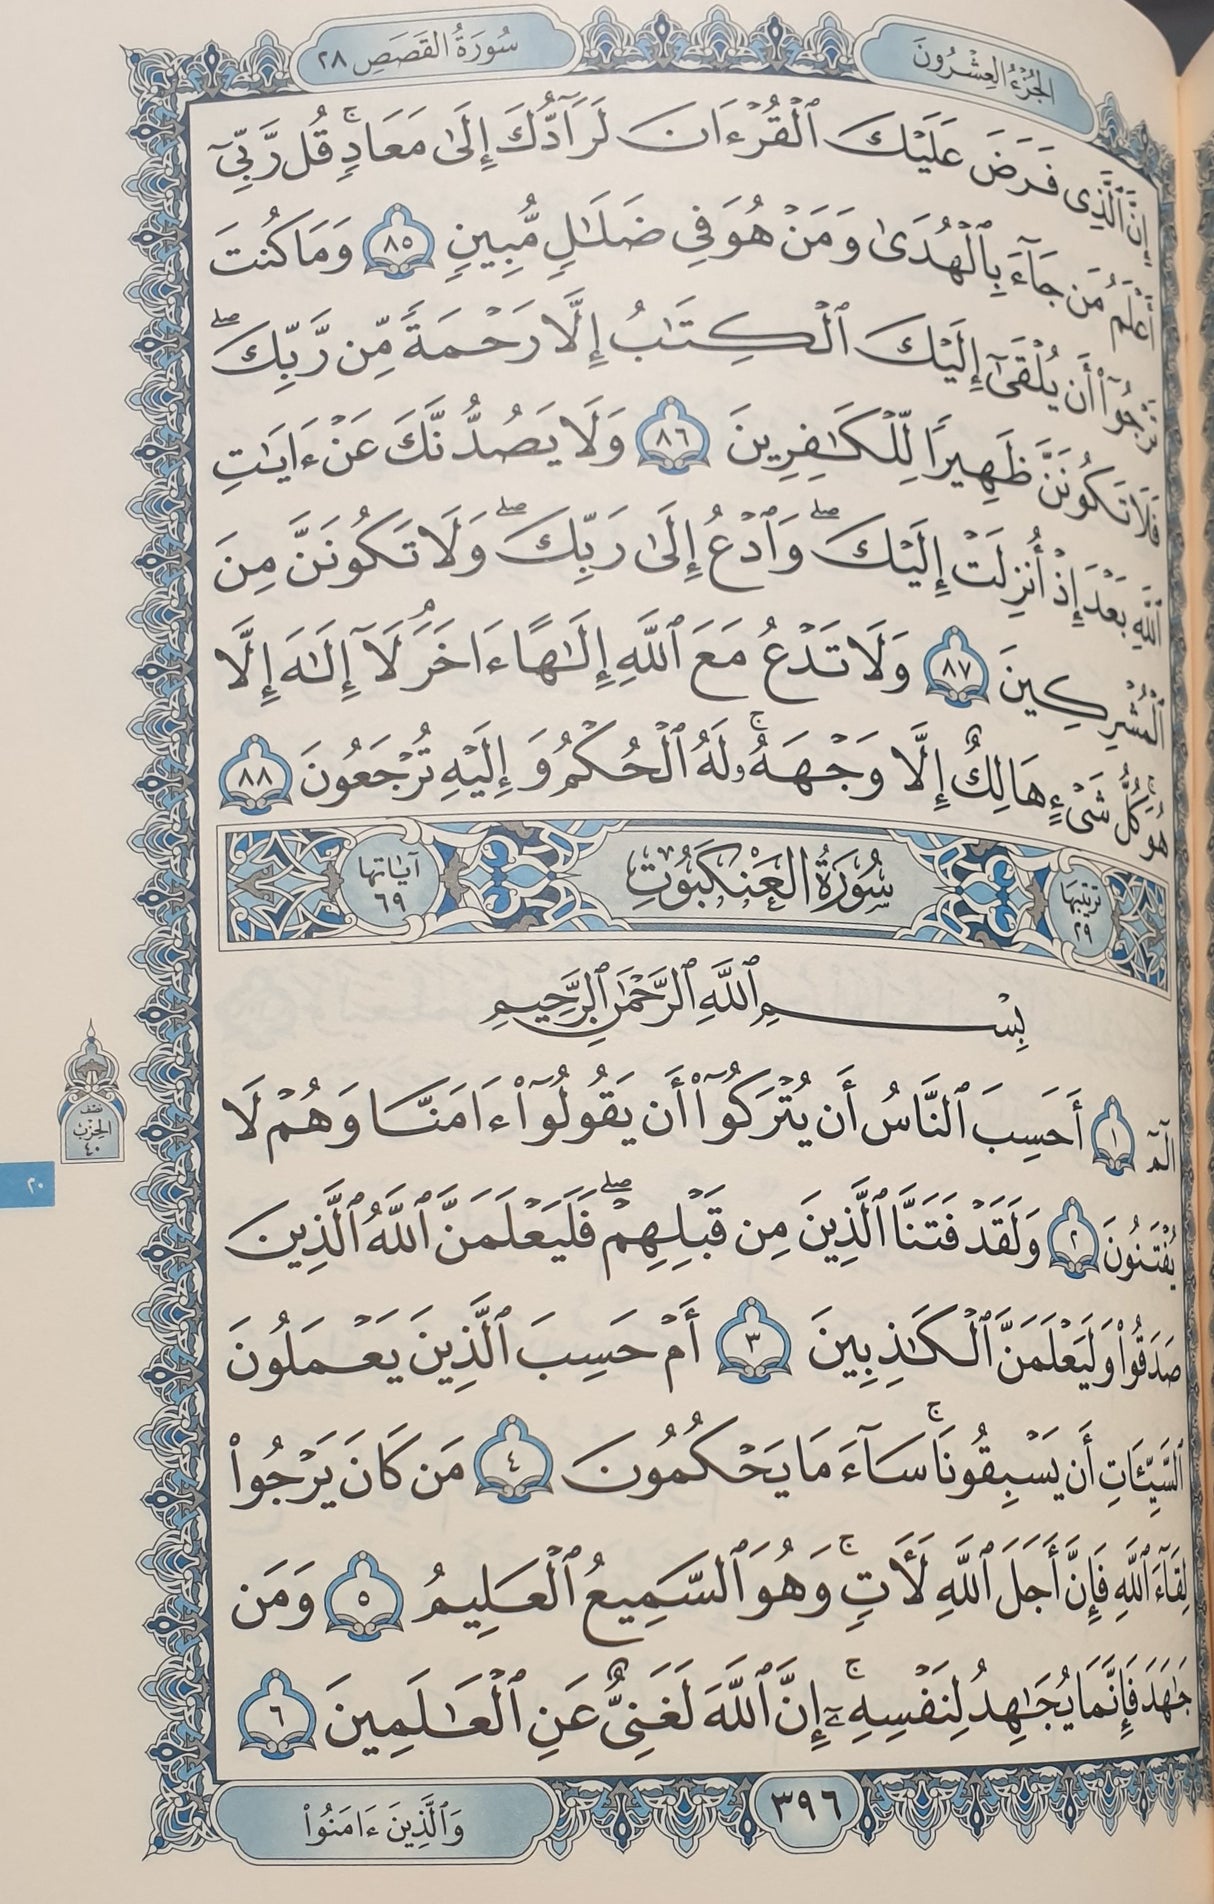 الجُزْءُ العِشْرُونَ
سُورَةُ القَصَصِ ٢٨
إِنَّ ٱلَّذِى فَرَضَ عَلَيْكَ ٱلْقُرْءَانَ لَرَآدُّكَ إِلَىٰ مَعَادٍۚ قُل رَّبِّىٓ
أَعْلَمُ مَن جَآءَ بِٱلْهُدَىٰ وَمَنْ هُوَ فِى ضَلَـٰلٍ مُّبِينٍ ٨٥ وَمَا كُنتَ
تَرْجُوٓا۟ أَن يُلْقَىٰٓ إِلَيْكَ ٱلْكِتَـٰبُ إِلَّا رَحْمَةً مِّن رَّبِّكَۖ
فَلَا تَكُونَنَّ ظَهِيرًا لِّلْكَـٰفِرِينَ ٨٦ وَلَا يَصُدُّنَّكَ عَنْ ءَايَـٰتِ
ٱللَّهِ بَعْدَ إِذْ أُنزِلَتْ إِلَيْكَۖ وَٱدْعُ إِلَىٰ رَبِّكَۖ وَلَا تَكُونَنَّ مِنَ
ٱلْمُشْرِكِينَ ٨٧ وَلَا تَدْعُ مَعَ ٱللَّهِ إِلَـٰهًا ءَاخَرَۘ لَآ إِلَـٰهَ إِلَّا
هُوَۚ كُلُّ شَىْءٍ هَالِكٌ إِلَّا وَجْهَهُۥۚ لَهُ ٱلْحُكْمُ وَإِلَيْهِ تُرْجَعُونَ ٨٨
ترتيبها ٢٩
سُورَةُ العَنكَبُوتِ
آياتها ٦٩
بِسْمِ ٱللَّهِ ٱلرَّحْمَـٰنِ ٱلرَّحِيمِ
الٓمٓ ١ أَحَسِبَ ٱلنَّاسُ أَن يُتْرَكُوٓا۟ أَن يَقُولُوٓا۟ ءَامَنَّا وَهُمْ لَا
يُفْتَنُونَ ٢ وَلَقَدْ فَتَنَّا ٱلَّذِينَ مِن قَبْلِهِمْۖ فَلَيَعْلَمَنَّ ٱللَّهُ ٱلَّذِينَ
صَدَقُوا۟ وَلَيَعْلَمَنَّ ٱلْكَـٰذِبِينَ ٣ أَمْ حَسِبَ ٱلَّذِينَ يَعْمَلُونَ
ٱلسَّيِّـَٔاتِ أَن يَسْبِقُونَاۚ سَآءَ مَا يَحْكُمُونَ ٤ مَن كَانَ يَرْجُوا۟
لِقَآءَ ٱللَّهِ فَإِنَّ أَجَلَ ٱللَّهِ لَـَٔاتٍۚ وَهُوَ ٱلسَّمِيعُ ٱلْعَلِيمُ ٥ وَمَن
جَـٰهَدَ فَإِنَّمَا يُجَـٰهِدُ لِنَفْسِهِۦٓۚ إِنَّ ٱللَّهَ لَغَنِىٌّ عَنِ ٱلْعَـٰلَمِينَ ٦
نصف
الحزب
٤٠
٢٠
٣٩٦
وَٱلَّذِينَ ءَامَنُوا۟